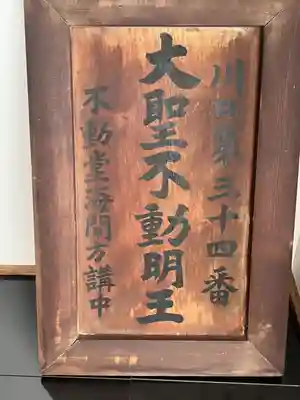 川口第三十四番
大聖不動明王
不動堂海間方講中